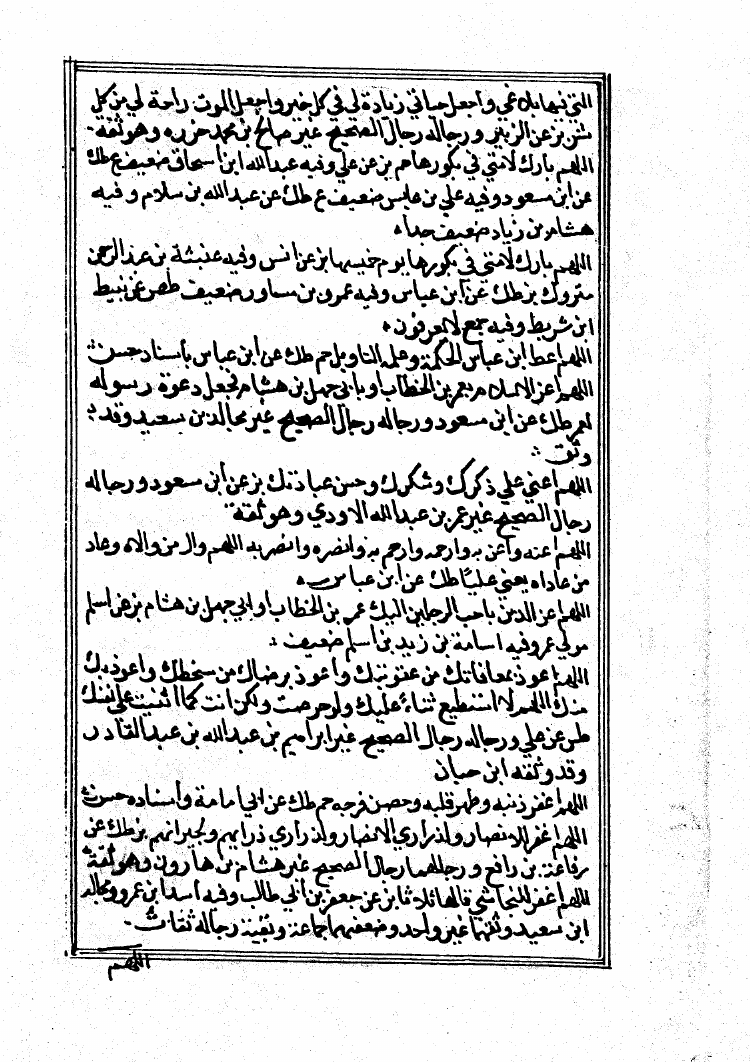 التي فيها بلاغي واجعل حياتي زيادة لي في كل خير واجعل الموت راحة لي من كل
شر بز عن الزبير ورجاله رجال الصحيح غير صالح بن محمد جزره وهو ثقة
اللهم بارك لأمتي في بكورها عم بز عن علي وفيه عبد الله ابن اسحاق ضعيف ع طك
عن ابن مسعود وفيه علي بن عابس ضعيف ع طك عن عبد الله بن سلام وفيه
هشام بن زياد ضعيف جدا
اللهم بارك لأمتي في بكورها يوم خميسها بز عن انس وفيه عنبسة بن عبد الرحمن
متروك بز طك عن ابن عباس وفيه عمرو بن مساور ضعيف طص عن نبيط
ابن شريط وفيه جمع لا يعرفون
اللهم اعط ابن عباس الحكمة وعلمه التاويل حم طك عن ابن عباس باسناد حسن
اللهم اعز الاسلام بعمر بن الخطاب او بابي جهل بن هشام فجعل دعوة رسوله
لعمر طك عن ابن مسعود ورجاله رجال الصحيح غير مجالد بن سعيد وقد
وثق
اللهم اعني علي ذكرك وشكرك وحسن عبادتك بز عن ابن مسعود ورجاله
رجال الصحيح غير عمر بن عبد الله الاودي وهو ثقة
اللهم اعنه واعن به وارحمه وارحم به وانصره وانصر به اللهم وال من والاه وعاد
من عاداه يعني عليا طك عن ابن عباس
اللهم عز الدين باحب الرجلين اليك عمر بن الخطاب او ابي جهل بن هشام بز عن اسلم
مولي عمر وفيه اسامة بن زيد بن اسلم ضعيف
اللهم اعوذ بمعافاتك من عقوبتك واعوذ برضاك من سخطك واعوذ بك
منك اللهم لا استطيع ثناء عليك ولو حرصت ولكن انت كما اثنيت علي نفسك
طس عن علي ورجاله رجال الصحيح غير ابراهيم بن عبد الله بن عبد القادر
وقد وثقه ابن حبان
اللهم اغفر ذنبه وطهر قلبه وحصن فرجه حم طك عن ابي امامة واسناده حسن
اللهم اغفر للانصار ولذراري الانصار ولذراري ذراريهم ولجيرانهم بز طك عن
رفاعة بن رافع ورجالهما رجال الصحيح غير هشام بن هارون وهو ثقة
اللهم اغفر للنجاشي قالها ثلاثا بز عن جعفر بن ابي طالب وفيه اسد ابن عمرو ومجالد
ابن سعيد وثقهما غير واحد وضعفهما جماعة وبقية رجاله ثقات
اللهم